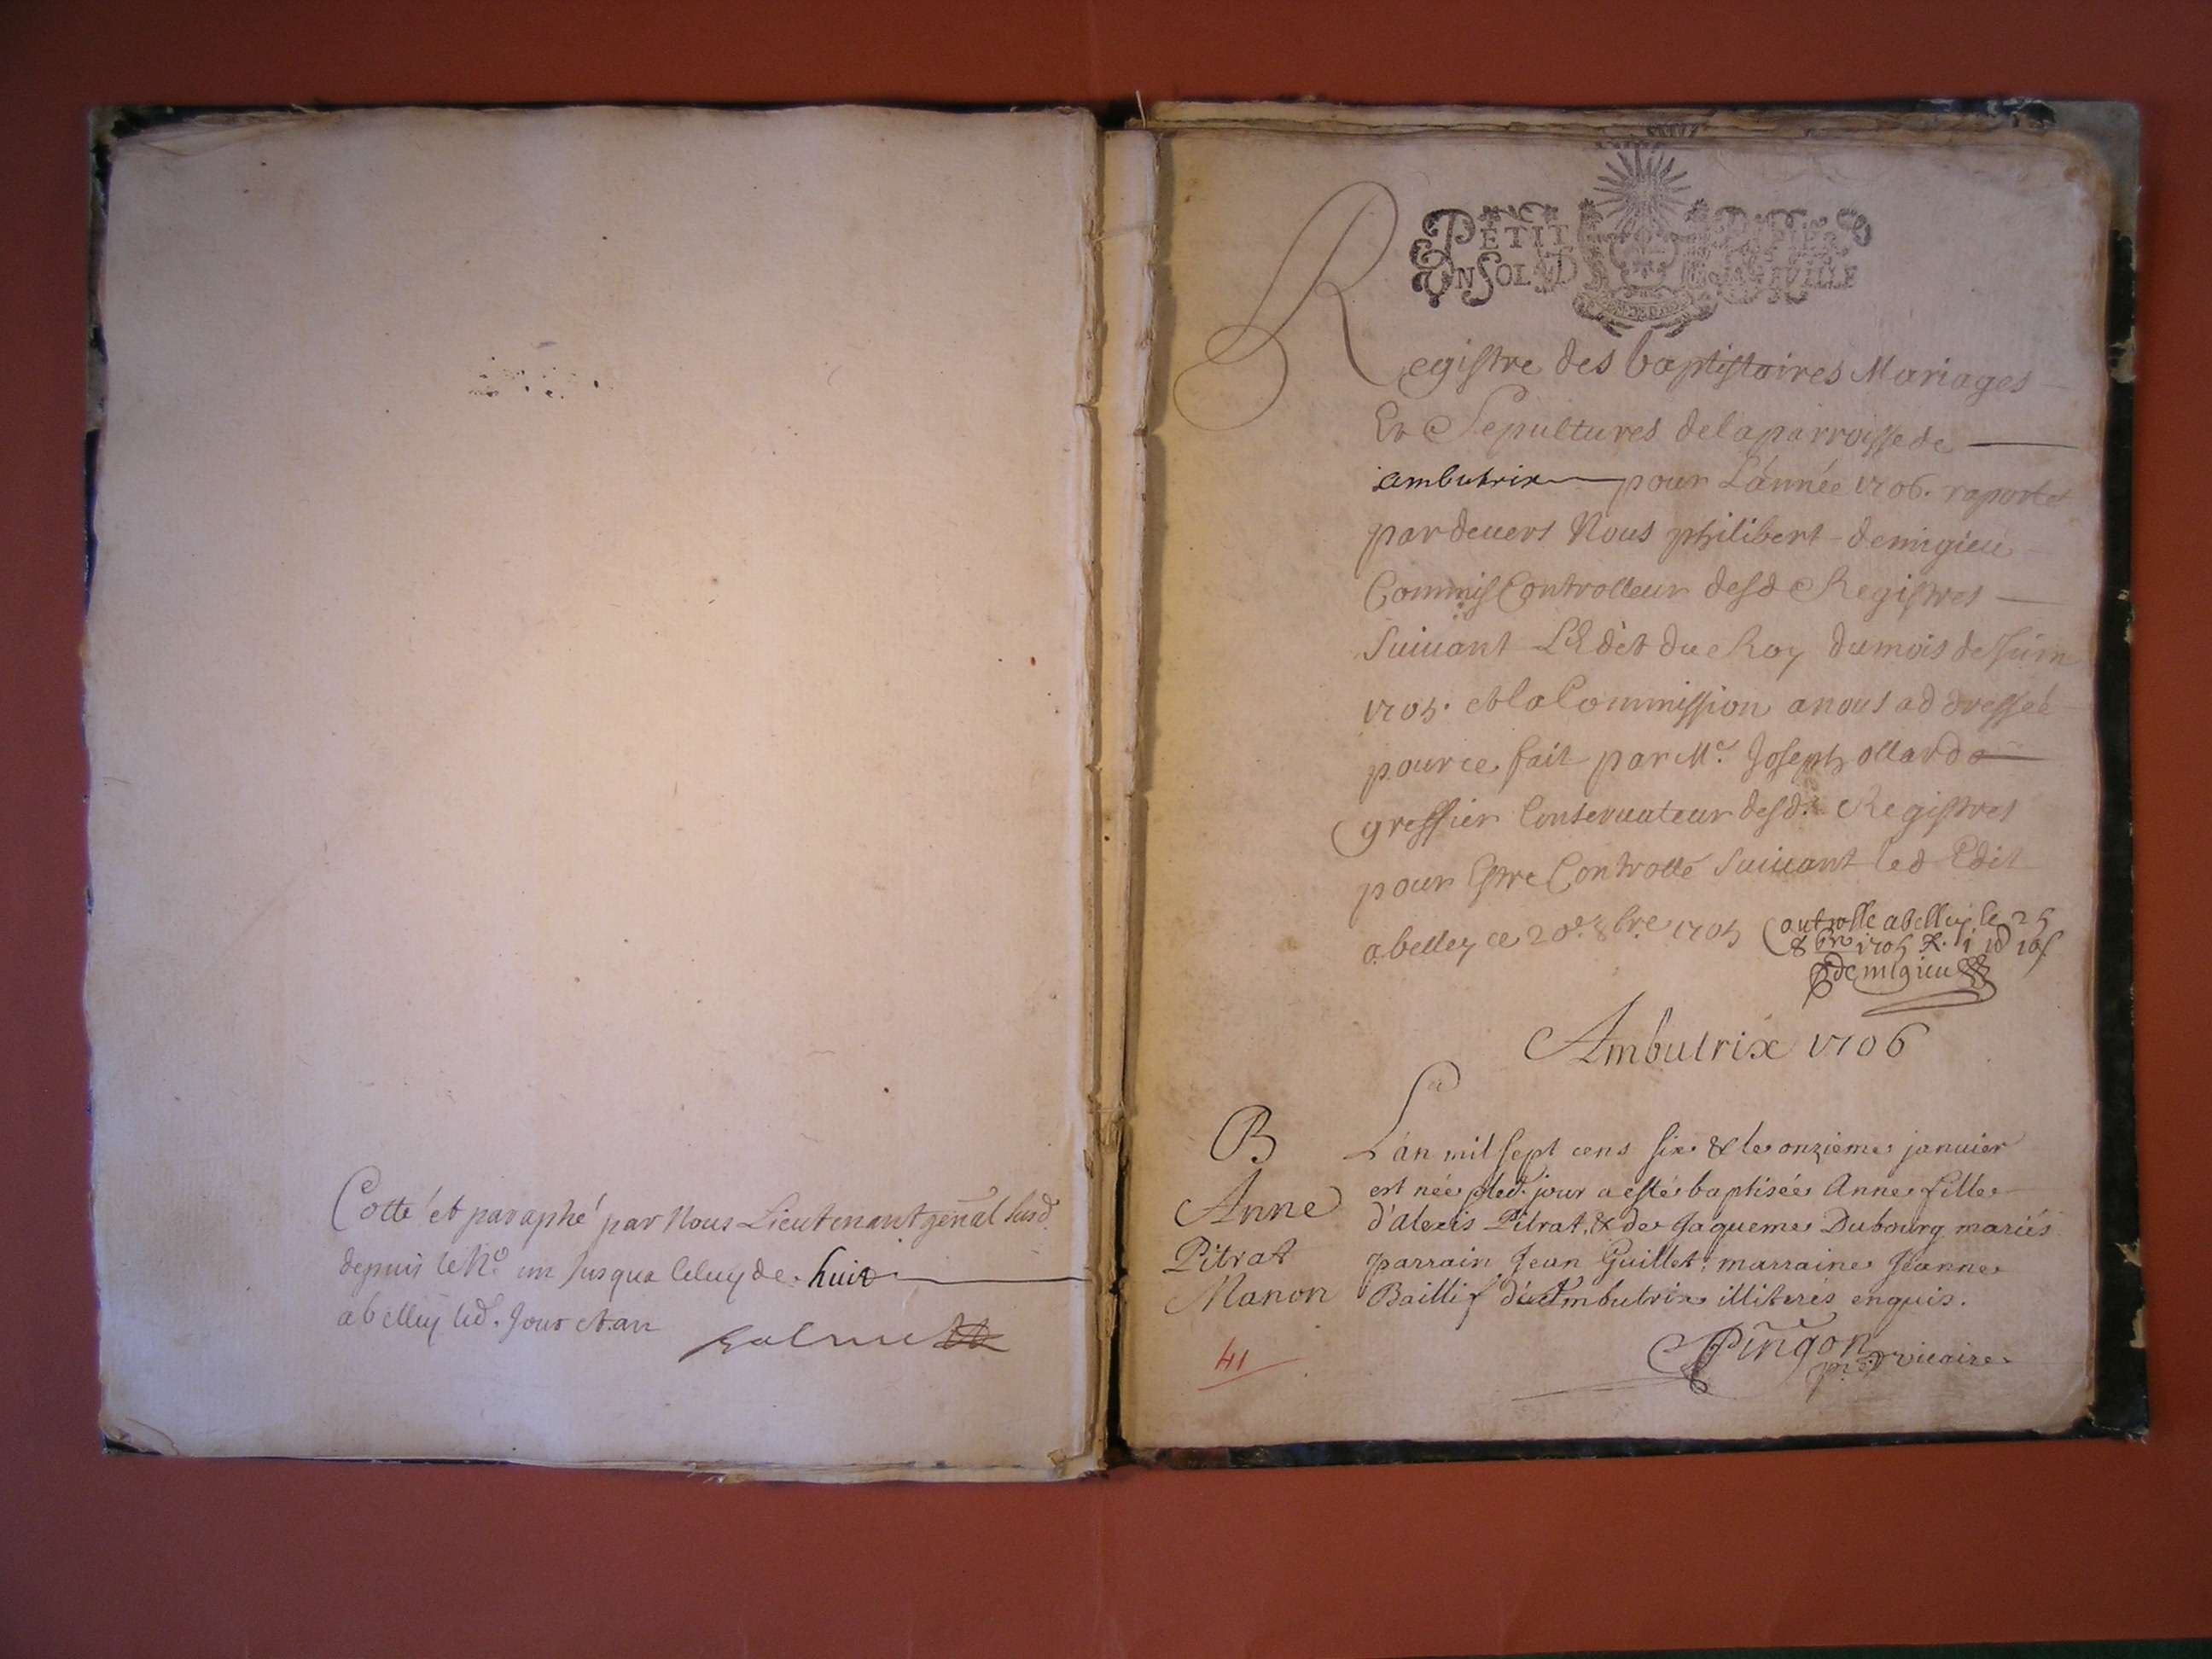 Cotté et paraphé par Nous Lieutenant genãl susd.
depuis le No un Jusqua celuy de huit
a belley led. Jour et an
PETIT PAPIER
UN SOL LA FEUILLE
Registre des baptistaires Mariages
Et Sepultures de la parroisse de
ambutrix pour L'année 1706. raporté
par devers Nous philibert demigieu
Commis Controlleur desd Registres
Suivant L'Edit du Roy du mois de Juin
1705. et la Commission a nous addressée
pour ce fait par Me. Joseph ollard
greffier Conservateur desd. Registres
pour Estre Controllé Suivant led Edit
a belley ce 20e. 8bre 1705
Controlle a belley le 25
8bre 1705
demigieu
Ambutrix 1706
B
Anne
Pitrat
Manon
41
L'an mil sept cens six & le onzieme janvier
est née & led. jour a esté baptisée Anne fille
d'alexis Pitrat, & de Jaqueme Dubourg mariés
parrain Jean Guillet, marraine Jeanne
Baillif d'Ambutrix illiterés enquis.
Pingon
vicaire